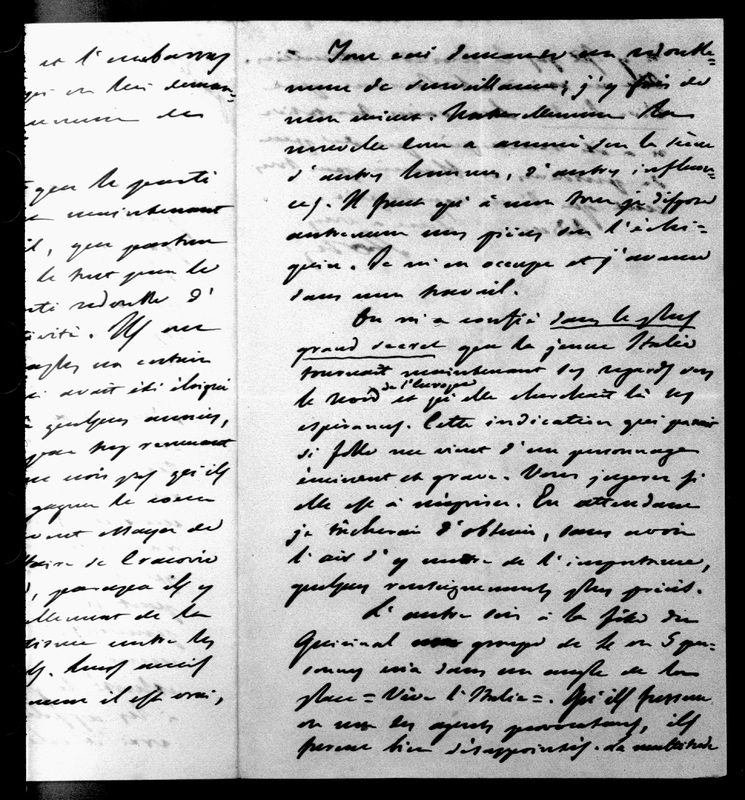 et l'embarras
qui on leur deman=
des
que le parti
maintenant
il, que partout
le tout pour le
redouble d'
tivité. Ils ont
un certain
avait été éloigné
quelques années,
revenant
ne crois pas qu'ils
gagner le coeur
Mayer de
taire de Cracovie
, parce qu'ils y
ellement de la
entre les
il est vrai,
Tout ceci demande un redouble=
ment de surveillance; j'y fais de
mon mieux. Naturellement la
nouvelle Cour a amené sur la scène
d'autres hommes, d'autres influen=
ces. Il faut qu'à mon tour je dispose
autrement mes pièces sur l'échi=
quier. Je m'en occupe et j'avance
dans mon travail.
On m'a confié dans le plus
grand secret que la jeune Italie
tournait maintenant ses regards vers
le Nord de l'Europe et qu'elle cherchait là ses
espérances. Cette indication qui parait
si folle me vient d'un personnage
éminent et grave. Vous jugerez si
elle est à mépriser. En attendant
je tâcherai d'obtenir, sans avoir
l'air d'y mettre de l'importance,
quelques renseignements plus précis.
L'autre soir à la fête du
Quirinal groupe de 4 ou 5 per=
sonnes cria dans un angle de la
place = Vive l'Italie =. Qu'ils fussent
ou non des agents provocateurs, ils
furent bien désappointés. La multitude